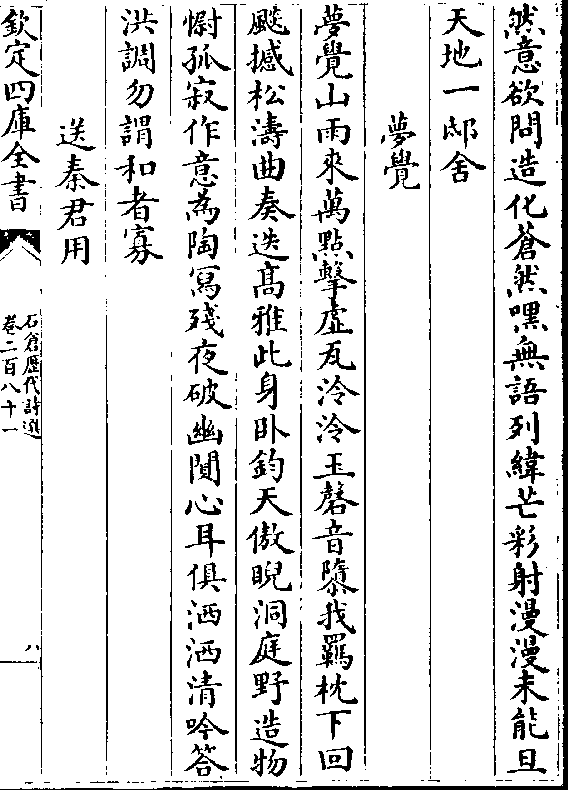 然意欲問造化蒼然嘿無語列緯芒彩射漫漫未能旦
天地一邸舍
夢覺
夢覺山雨來萬點擊虛瓦泠泠玉磬音隳我羈枕下回
飈撼松濤曲奏迭髙雅此身卧鈞天傲睨洞庭野造物
慰孤寂作意為陶冩殘夜破幽閴心耳俱洒洒清吟答
洪調勿謂和者寡
送秦君用
欽定四庫全書
石倉歴代詩選
卷二百八十一
八